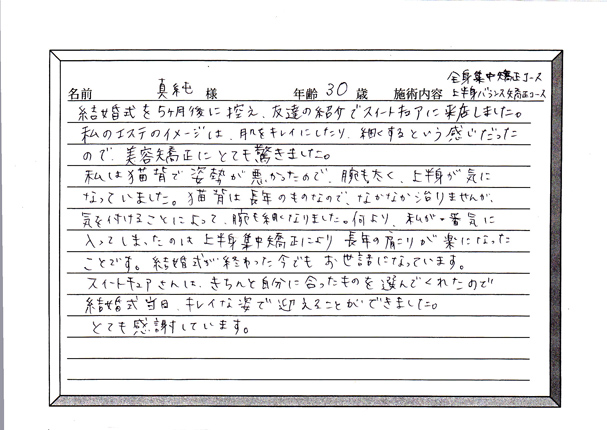 全身集中矯正コース
名前 真純 様 年齢 30 歳 施術内容 上半身バランス矯正コース
結婚式を5ヶ月後に控え、友達の紹介でスイートキュアに来店しました。
私のエステのイメージは、肌をキレイにしたり、細くするという感じだった
ので、美容矯正にとても驚きました。
私は猫背で姿勢が悪かったので、腕も太く、上半身が気に
なっていました。猫背は長年のものなので、なかなか治りませんが、
気を付けることによって、腕も細くなりました。何より、私が一番気に
入ってしまったのは上半身集中矯正により長年の肩こりが楽になった
ことです。結婚式が終わった今でもお世話になっています。
スイートキュアさんは、きちんと自分に合ったものを選んでくれたので
結婚式当日、キレイな姿で迎えることができました。
とても感謝しています。